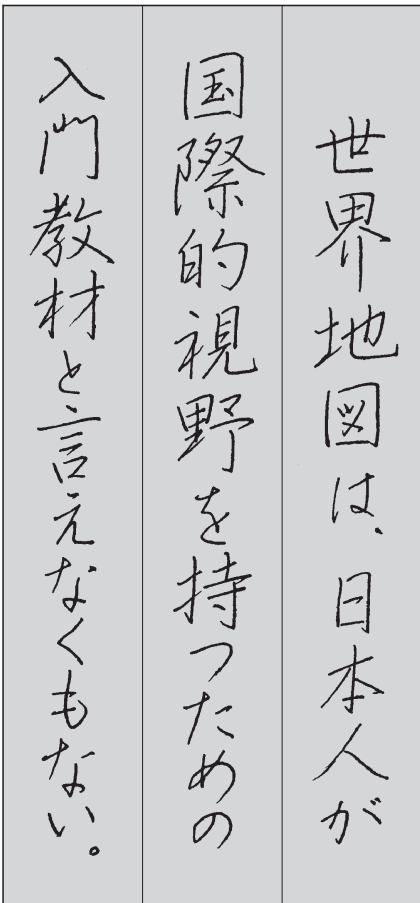 世界地図は、日本人が
国際的視野を持つための
入門教材と言えなくもない。